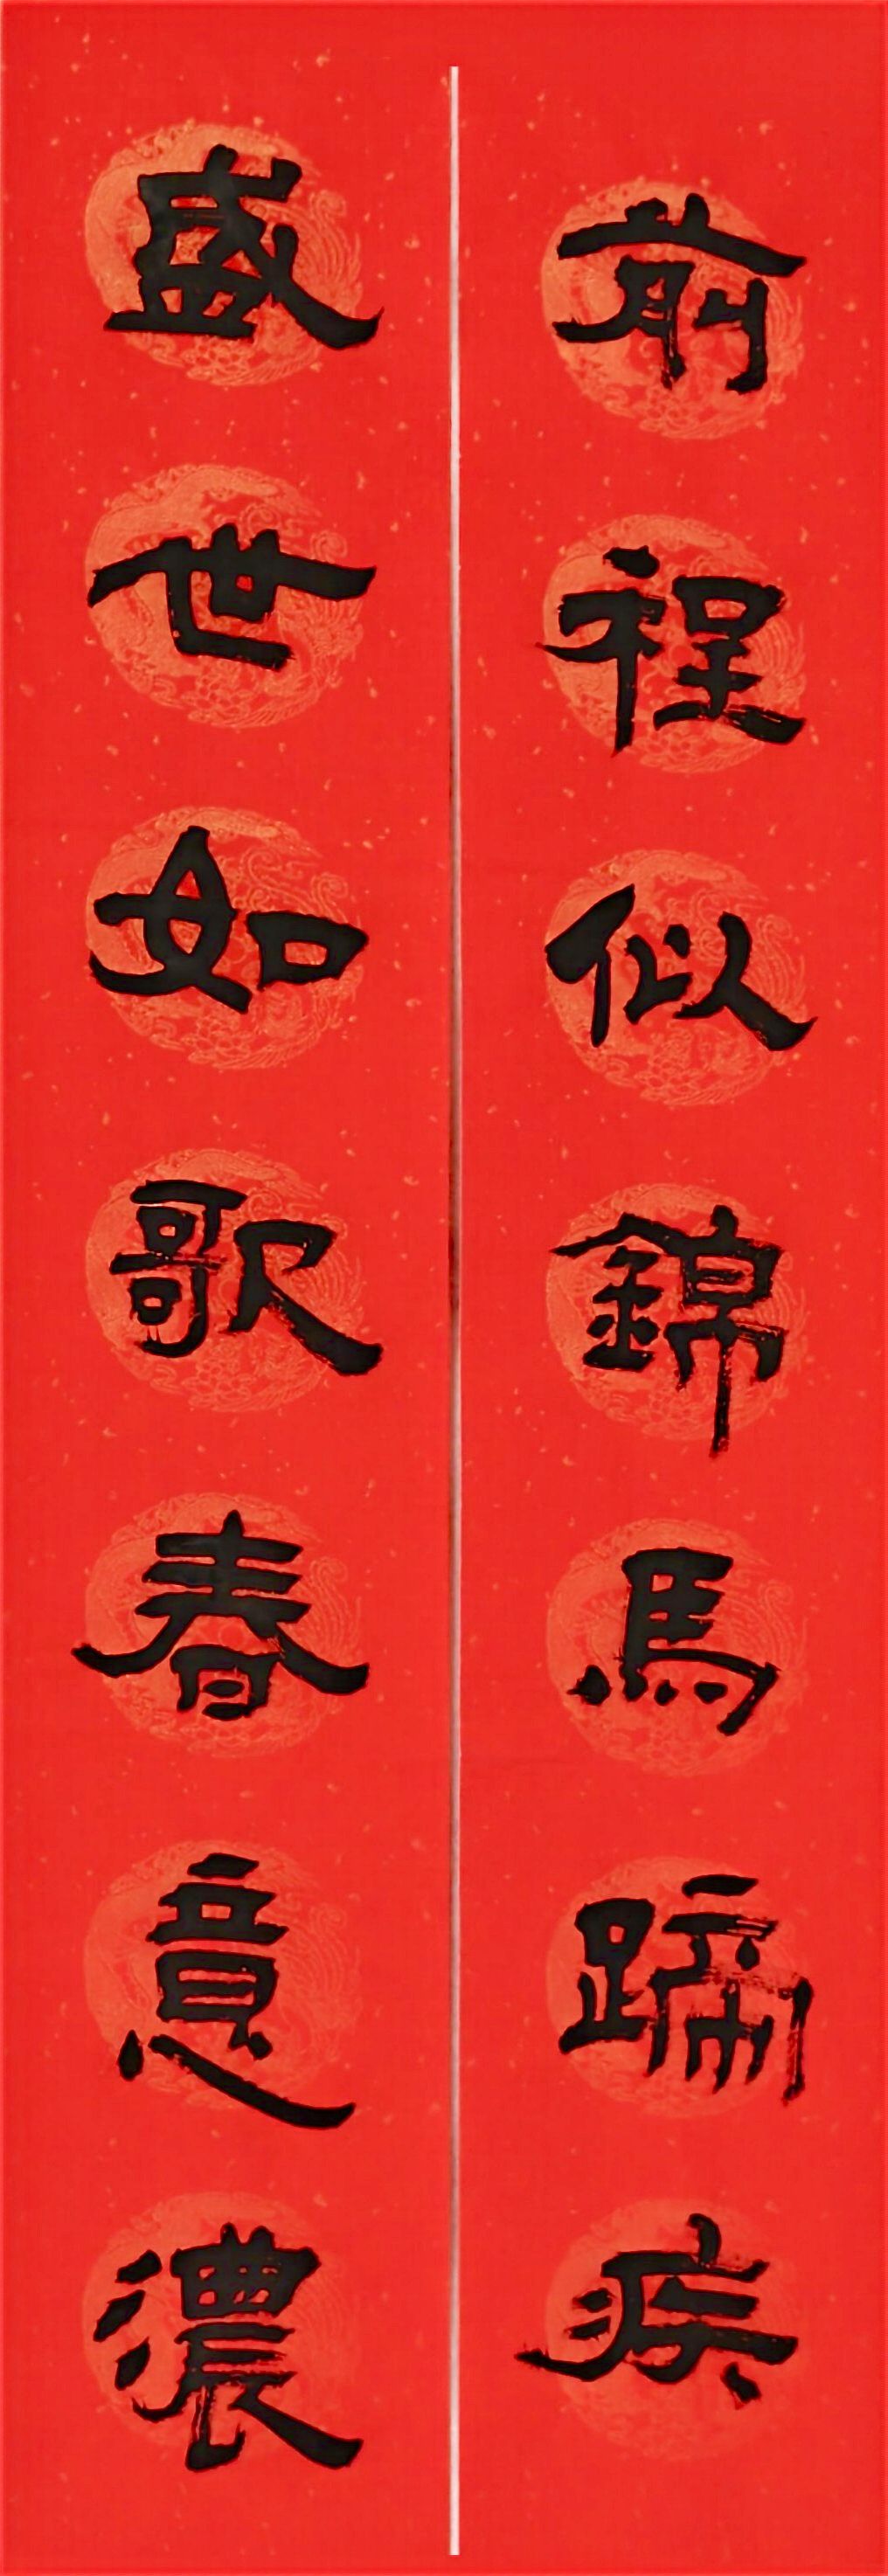 前程似錦馬蹄疾
盛世如歌春意濃